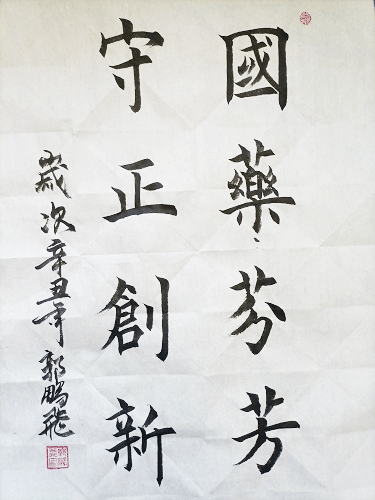 國藥芬芳
守正創新
歲次辛丑年郭鵬飛